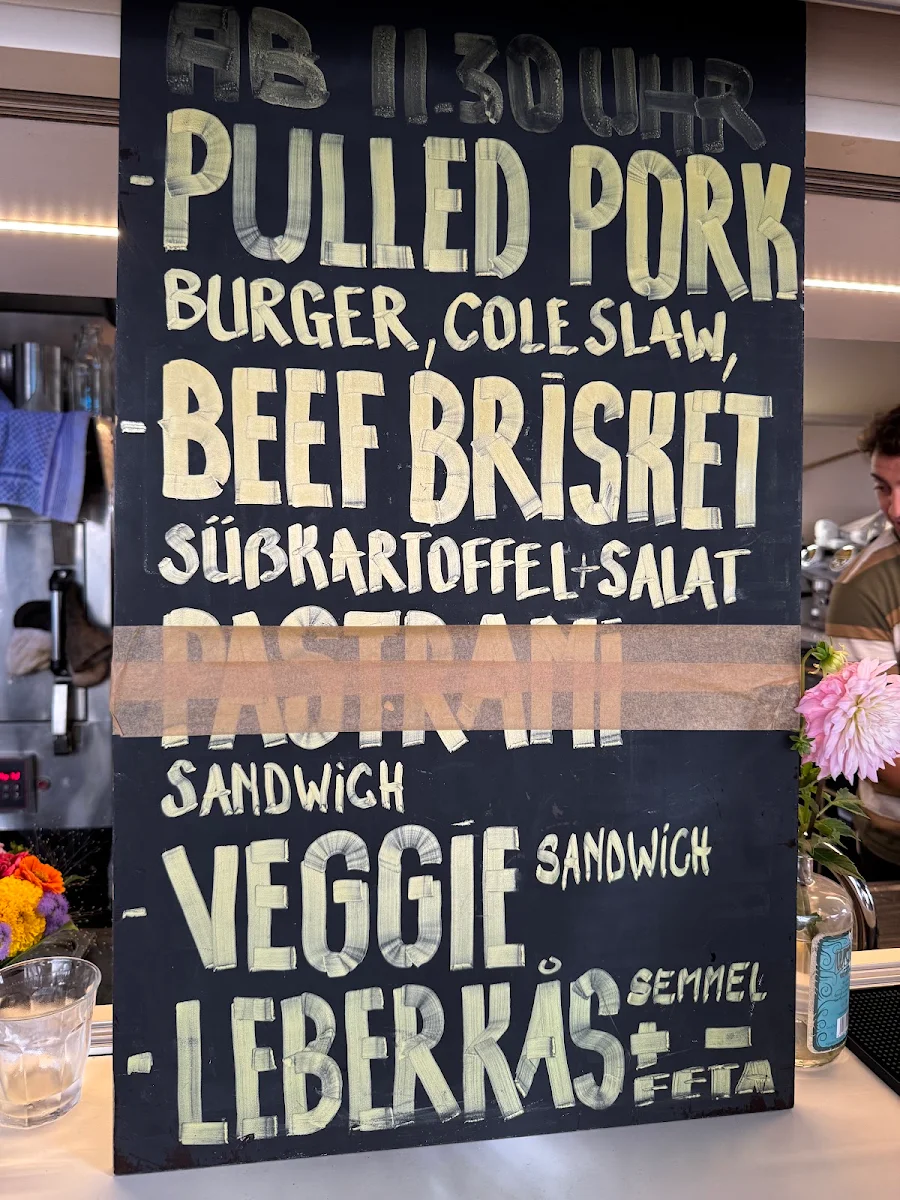 AB 11.30 UHR
- PULLED PORK
BURGER, COLESLAW,
- BEEF BRISKET
SÜßKARTOFFEL+SALAT
PASTRAMI
SANDWICH
- VEGGIE SANDWICH
- LEBERKÅS SEMMEL
+ -
FETA